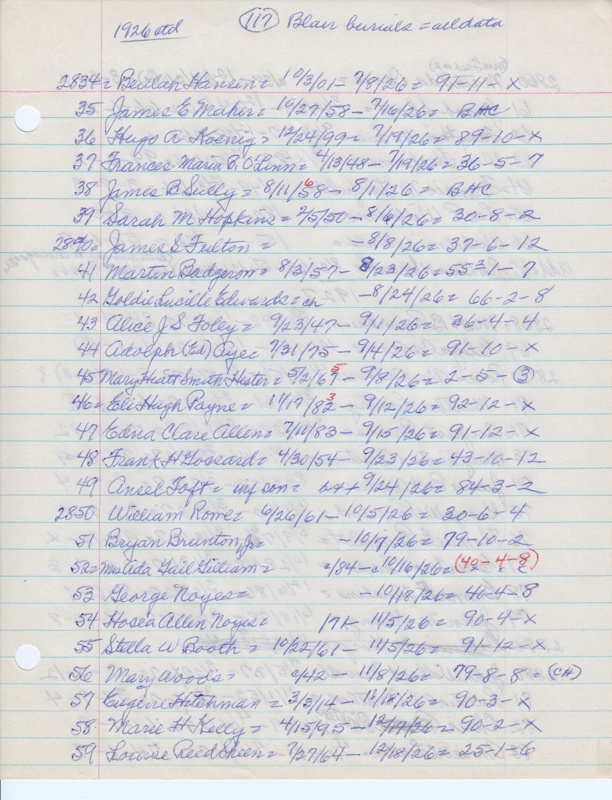 1926 ctd (117) Blair burials = all data
2834 = Beulah Hansen = 10/3/01 - 7/8/26 = 91-11-X
35 James E Maher = 10/27/58 - 7/16/26 = BHC
36 Hugo A Koenig = 12/24/99 = 7/19/26 = 89-10-X
37 Frances Maria P. O'Linn = 4/13/48 - 7/19/26 = 36-5-7
38 James B Sully = 8/11/58 6 - 8/1/26 = BHC
39 Sarah M Hopkins = 2/5/50 - 8/6/26 = 30-8-2
2840 = James S Fulton = - 8/8/26 = 37-6-12
41 Martin Badgerow = 8/3/57 - 8/23/26 = 55-1-7
42 Goldie Lucille Edwards = ch - 8/24/26 = 66-2-8
43 Alice J S Foley = 9/23/47 - 9/1/26 = 36-4-4
44 Adolph (Ed) Aye = 7/31/75 - 9/4/26 = 91-10-X
45 Mary Hiatt Smith Hester = 5/2/67 5 - 9/8/26 = 2-5-(3)
46 = Eli Hugh Payne = 11/17/82 3 - 9/12/26 = 92-12-X
47 Edna Clare Allen = 7/11/83 - 9/15/26 = 91-12-X
48 Frank H Gossard = 4/30/54 - 9/23/26 = 43-10-12
49 Ansel Toft = inf son = 9/24/26 = 84-3-2
2850 William Rowe = 6/26/61 - 10/5/26 = 30-6-4
51 Bryan Brunton, Jr = - 10/7/26 = 79-10-2
52 = Gail Gilliam = c/84 - c 10/16/26 = (40-4-8)
53 George Noyes = - 10/18/26 = 40-4-8
54 Hosea Allen Noyes = /71 - 11/5/26 = 90-4-X
55 Stella W Booth = 10/22/61 - 11/5/26 = 91-12-X
56 Mary Woods = c/42 - 11/8/26 = 79-8-8 = (CH)
57 Eugene Hotchman = 3/3/14 - 11/18/26 = 90-3-X
58 - Marie H Kelly = 4/15/95 - 12/17/26 = 90-2-X
59 Louise Reed Skeen = 7/27/64 - 12/18/26 = 25-1-6